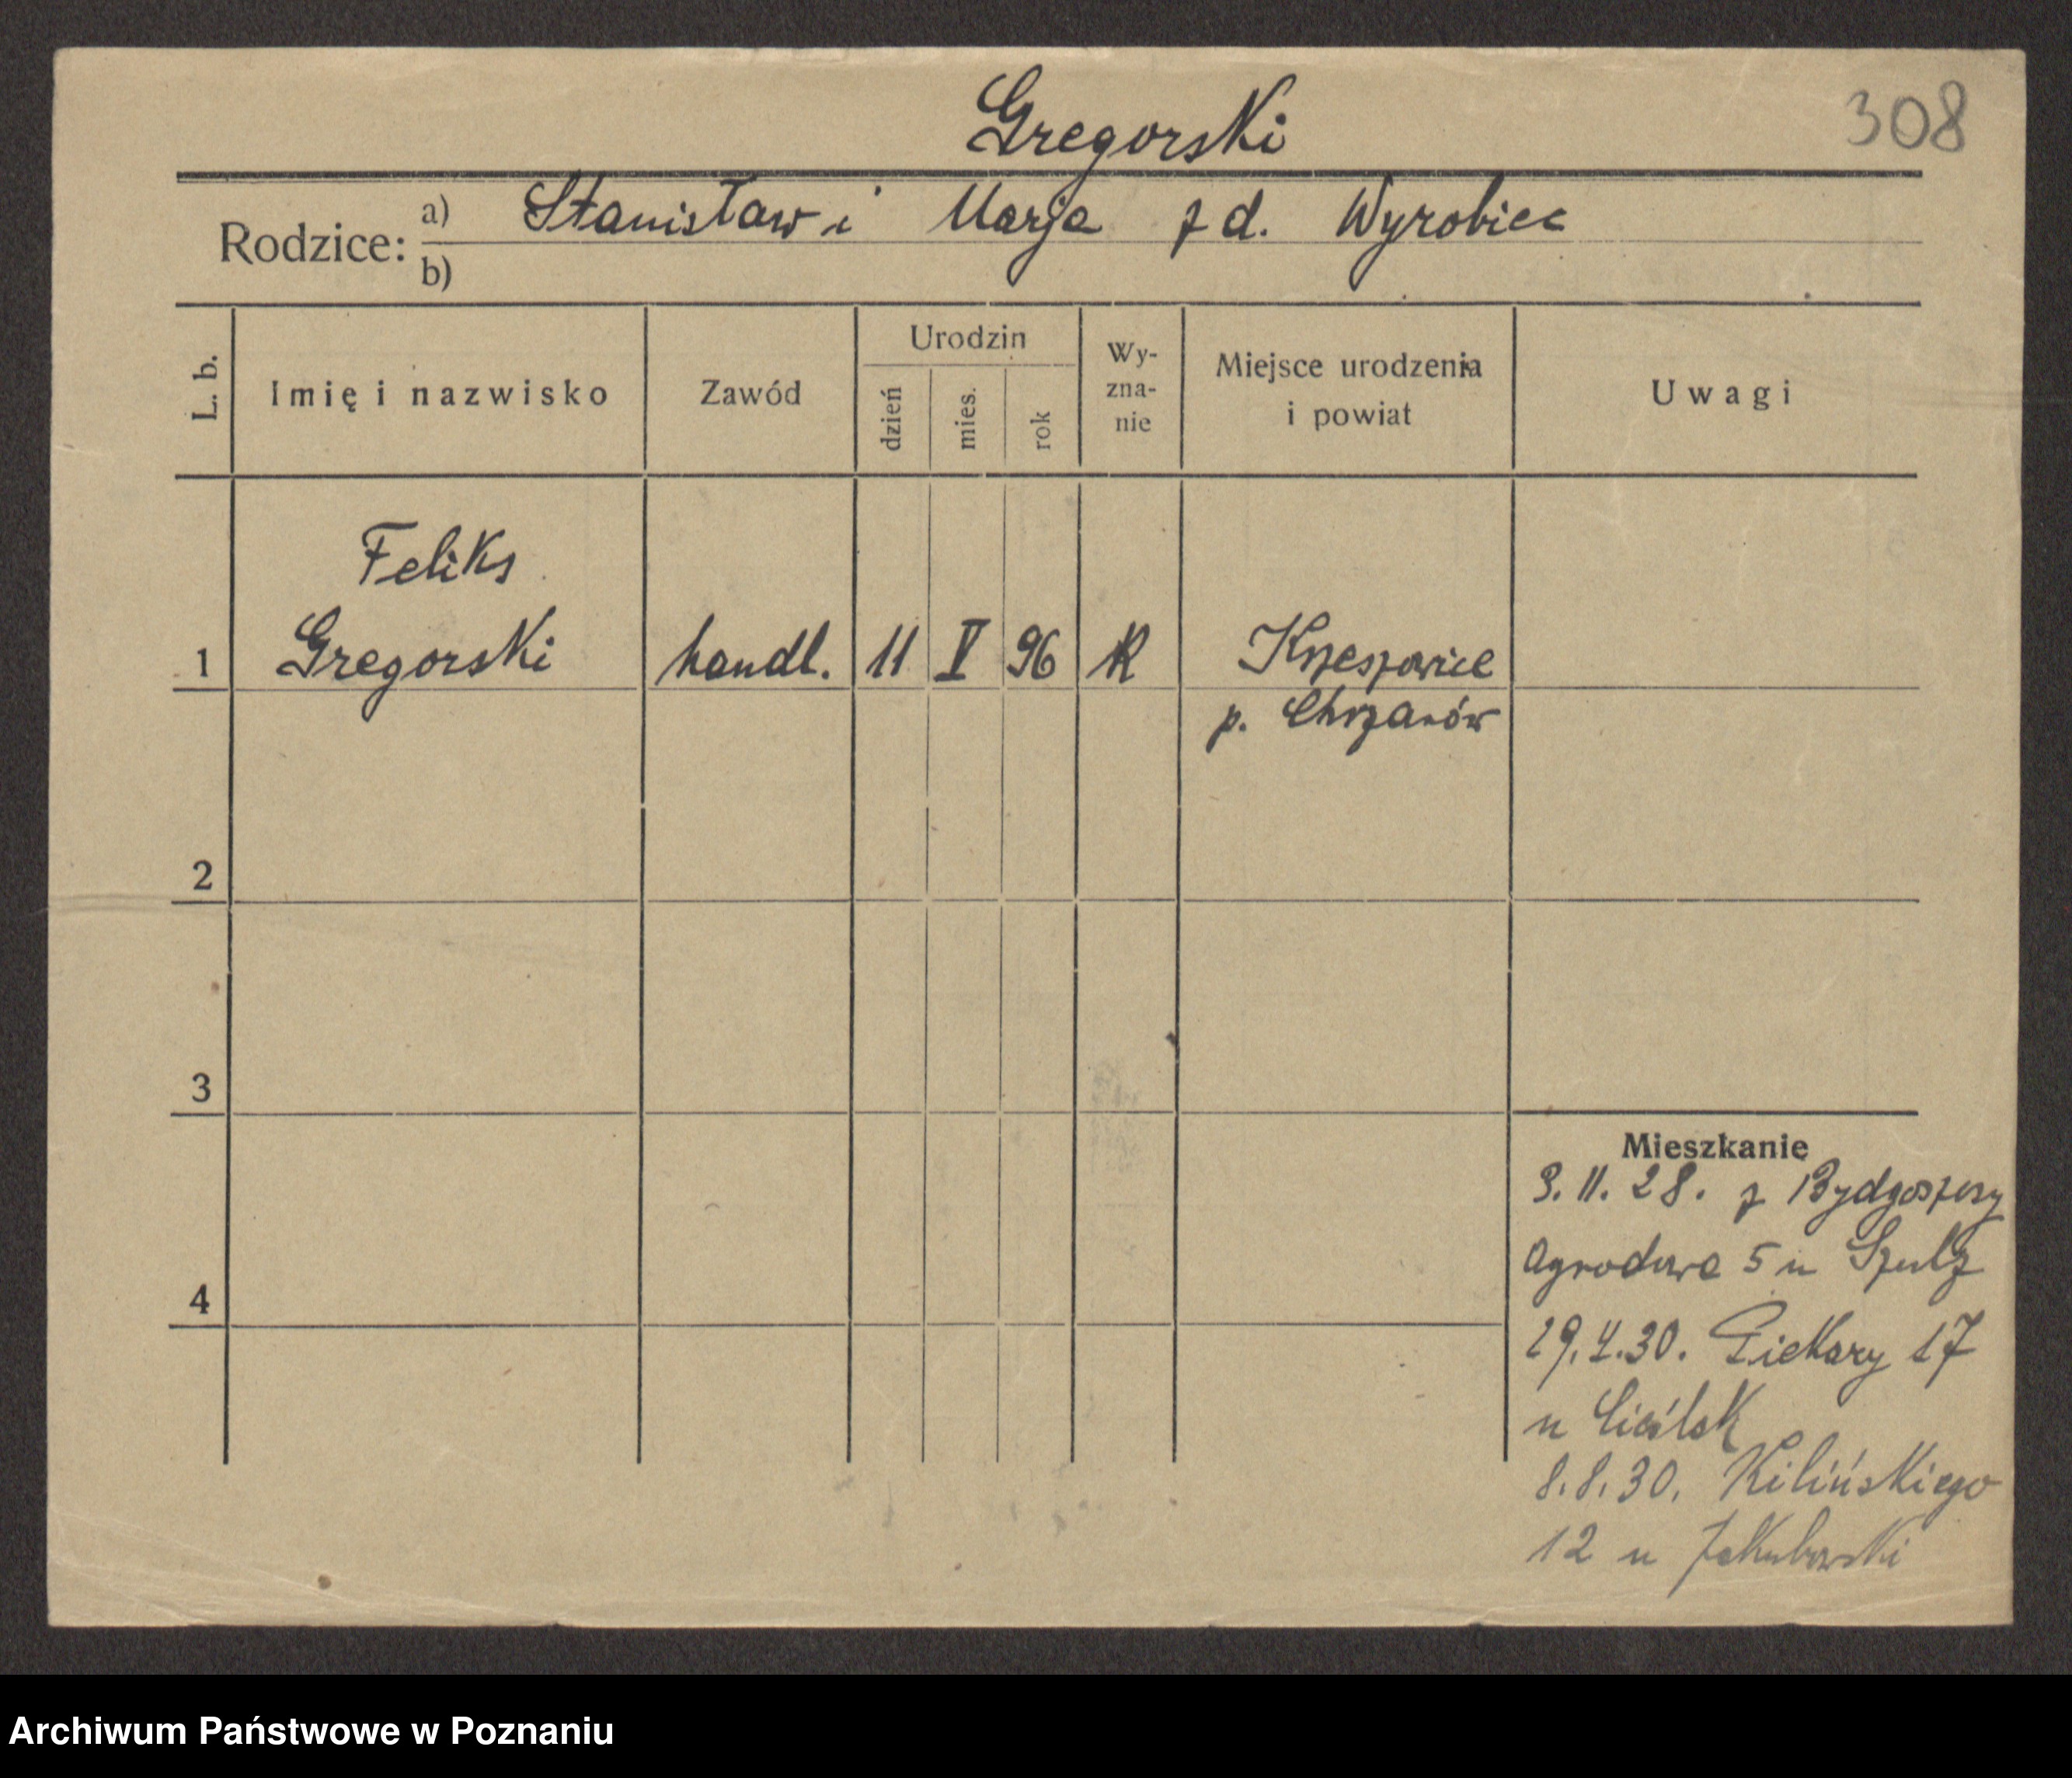 Gregorski
308
Rodzice: a) Stanisław i Marja z d. Wyrobiec
b)
L. b.
Imię i nazwisko
Zawód
Urodzin
dzień
mies.
rok
Wy-
zna-
nie
Miejsce urodzenia
i powiat
Uwagi
Feliks
1 Gregorski handl. 11 V 96 K Krzeszowice
p. Chrzanów
2
3
4
Mieszkanie
3. 11. 28. z Bydgoszczy
Ogrodowa 5 u Szulz
29.4.30. Piekary 17
u Cieślak
8.8.30. Kilińskiego
12 u Jakubowski
Archiwum Państwowe w Poznaniu